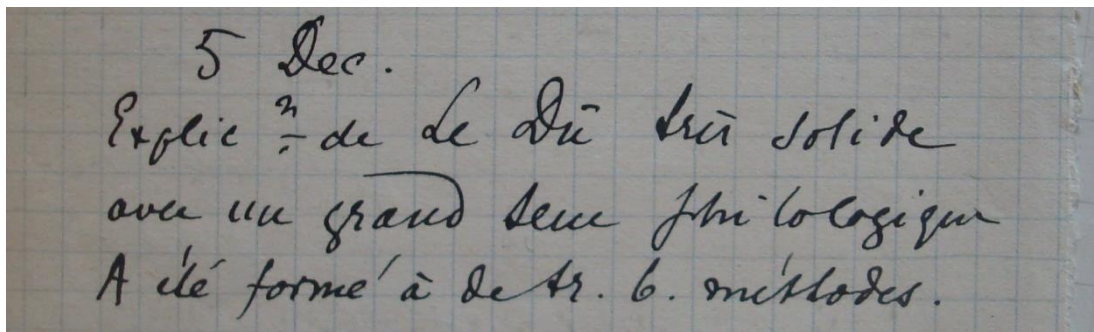 5 Dec.
Explic n de Le Dû très solide
avec un grand sens philologique
A été formé à de tr. b. méthodes.